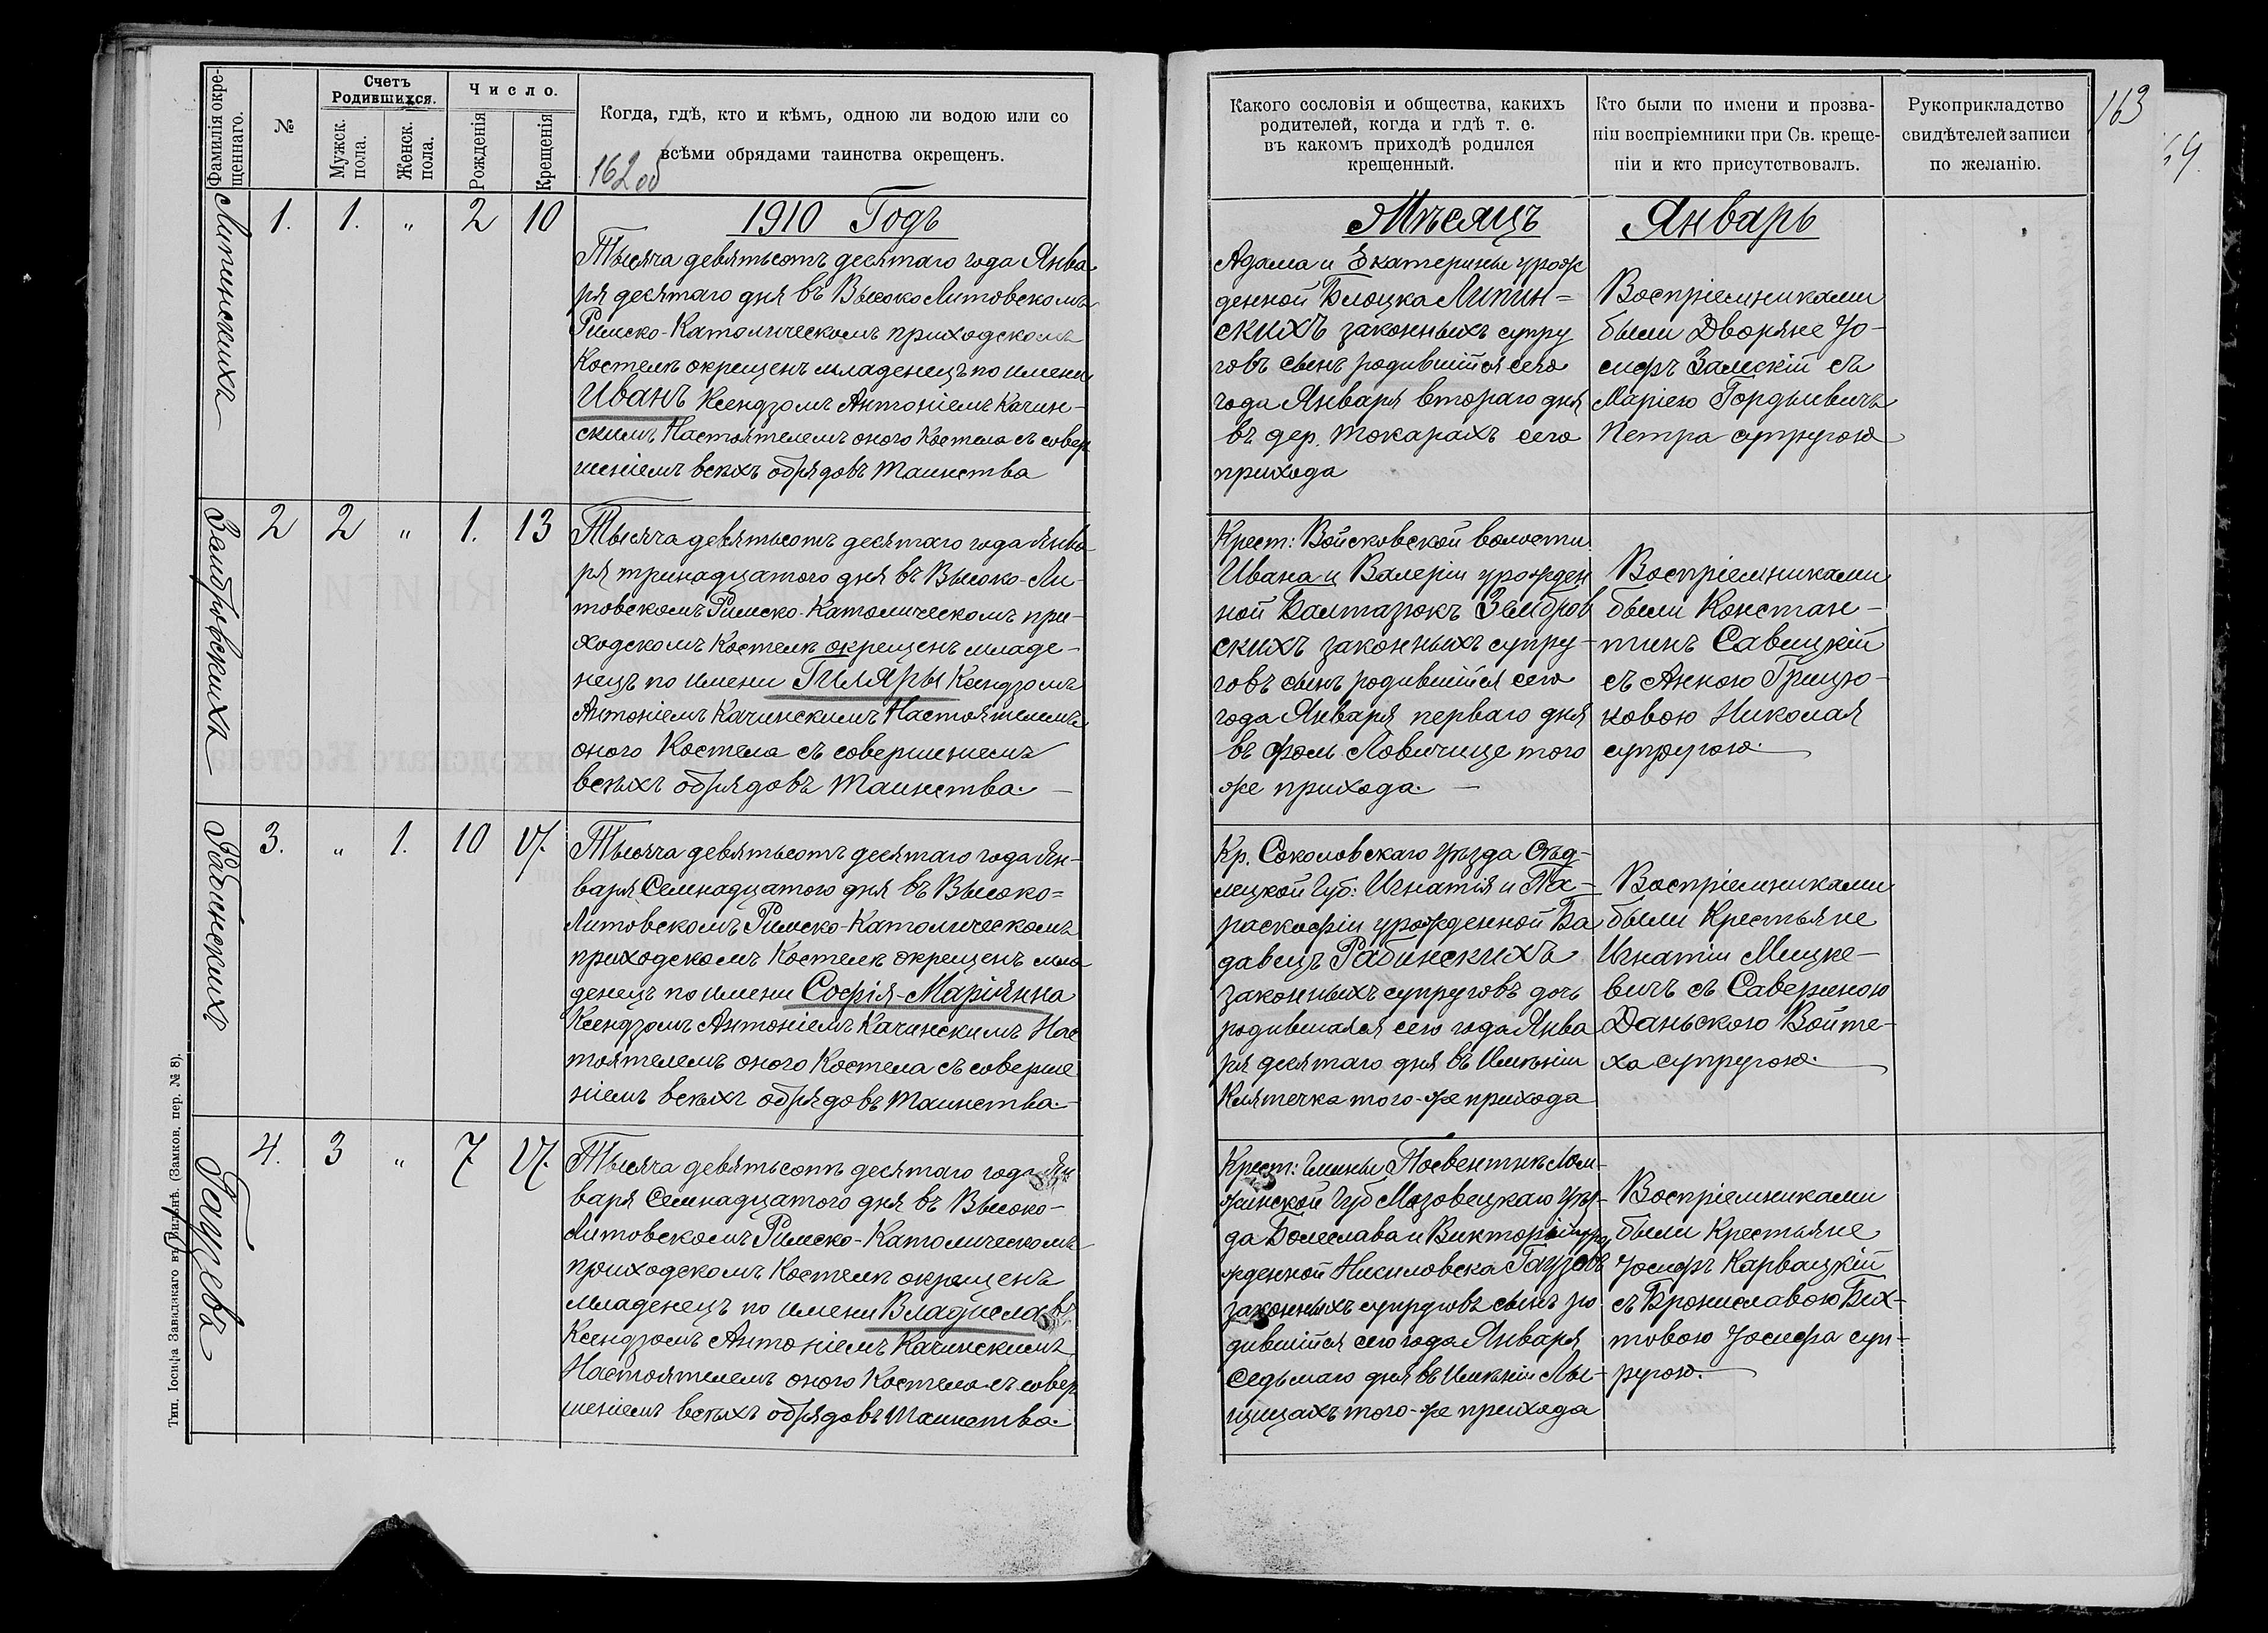 Фамилія окре-
щеннаго.
№
Счетъ
Родившихся.
Мужск.
пола.
Женск.
пола.
Число.
Рожденія
Крещенія
Когда, гдѣ, кто и кѣмъ, одною ли водою или со
всѣми обрядами таинства окрещенъ.
162 об
Липинскихъ
1.
1.
"
2
10
1910 Годъ
Тысяча девятьсотъ десятаго года Янва
ря десятаго дня въ Высоко Литовскомъ
Римско-Католическомъ приходскомъ
Костелѣ окрещенъ младенецъ по имени
Иванъ Ксендзомъ Антоніемъ Качин-
скимъ Настоятелемъ оного Костела съ совер
шеніемъ всѣхъ обрядовъ Таинства
Замбровскихъ
2
2
"
1.
13
Тысяча девятьсотъ десятаго года Янва-
ря тринадцатого дня въ Высоко-Ли-
товскомъ Римско-Католическомъ при-
ходскомъ Костелѣ окрещенъ младе-
нецъ по имени Гиляры Ксендзомъ
Антоніемъ Качинскимъ Настоятелемъ
оного Костела съ совершеніемъ
всѣхъ обрядовъ Таинства. —
Рабинскихъ
3.
"
1.
10
17.
Тысяча девятьсотъ десятаго года Ян-
варя Семнадцатого дня въ Высоко=
Литовскомъ Римско-Католическомъ
приходскомъ Костелѣ окрещенъ мла
денецъ по имени Софія-Маріянна
Ксендзомъ Антоніемъ Качинскимъ Нас
тоятелемъ оного Костела съ соверше
ніемъ всѣхъ обрядовъ Таинства.-
Гаузевъ
4.
3
"
7
17.
Тысяча девятьсотъ десятаго года Ян
варя Семнадцатого дня въ Высоко-
Литовскомъ Римско-Католическомъ
приходскомъ Костелѣ окрещенъ
младенецъ по имени Владиславъ
Ксендзомъ Антоніемъ Качинскимъ
Настоятелемъ оного Костела съ совер
шеніемъ всѣхъ обрядовъ Таинства.
Тип. Іосифа Завадзкаго въ Вильнѣ. (Замков. пер. № 8).
Какого сословія и общества, какихъ
родителей, когда и гдѣ т. е.
въ какомъ приходѣ родился
крещенный.
Кто были по имени и прозва-
ніи воспріемники при Св. креще-
ніи и кто присутствовалъ.
Рукоприкладство
свидѣтелей записи
по желанію.
163
Мѣсяцъ
Январь
Адама и Екатерины урож
денной Блоцка Липин=
скихъ законныхъ супру
говъ сынъ родившійся сего
года Января втораго дня
въ дер. Токарахъ сего
прихода
Воспріемниками
были Дворяне Іо-
сифъ Залескій съ
Маріею Гордзевичъ
Петра супругою
Крест: Войсковской волости
Ивана и Валеріи урожден
ной Балтазюкъ Замбров
скихъ законныхъ супру-
говъ сынъ родившійся сего
года Января перваго дня
въ фоль. Ловчице того
же прихода. —
Воспріемниками
были Констан-
тинъ Савицкій
съ Анною Грицю-
ковою Николая
супругою.
Кр. Соколовскаго уѣзда Сѣд-
лецкой Губ: Игнатія и Па-
раскефіи урожденной Ба
давецъ Рабинскихъ
законныхъ супруговъ дочь
родившаяся сего года Янва
ря десятаго дня въ Имѣніи
Клятечка того-же прихода
Воспріемниками
были Крестьяне
Игнатій Мицке-
вичъ съ Севериною
Даньскою Войте-
ха супругою.
Крест: Гмины Посвентнѣ Лом-
жинской Губ Мазовецкаго уѣз-
да Болеслава и Викторіи уро
жденной Нисиловска Гаузевъ
законныхъ супруговъ сынъ ро
дившійся сего года Января
Седьмаго дня въ Имѣніи Лы-
щицахъ того-же прихода
Воспріемниками
были Крестьяне
Іосифъ Карвацкій
съ Брониславою Бих-
товою Іосифа суп-
ругою.